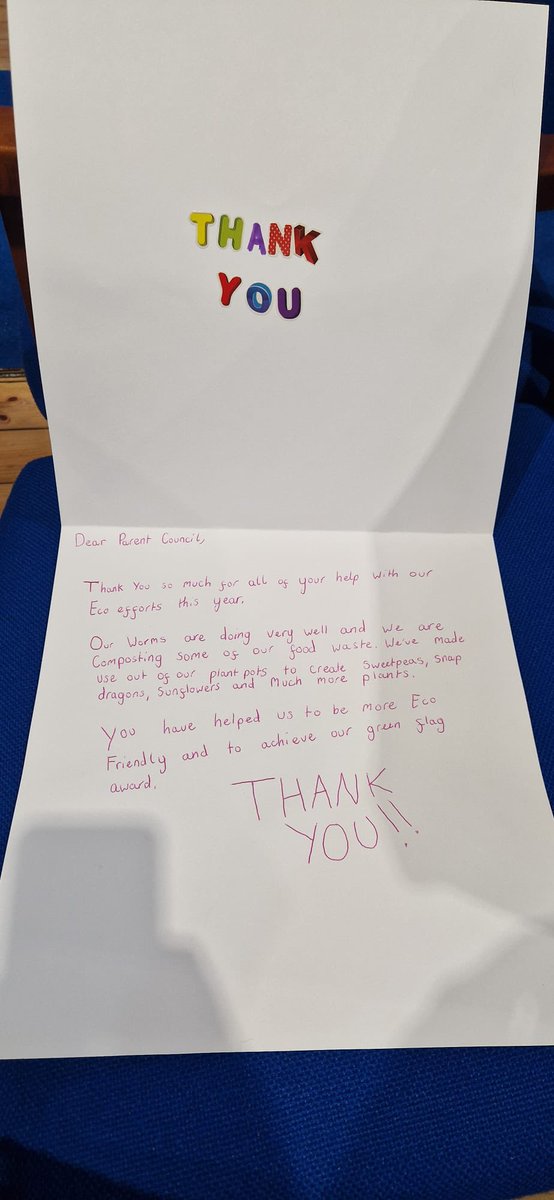 THANK
YOU
Dear Parent Council,
Thank You so much for all of your help with our
Eco efforts this year.
Our Worms are doing very well and we are
Composting some of our food waste. We've made
use out of our plant pots to create Sweetpeas, Snap
dragons, Sunflowers and Much more plants.
You have helped us to be more Eco
Friendly and to achieve our green flag
award.
THANK
YOU!!